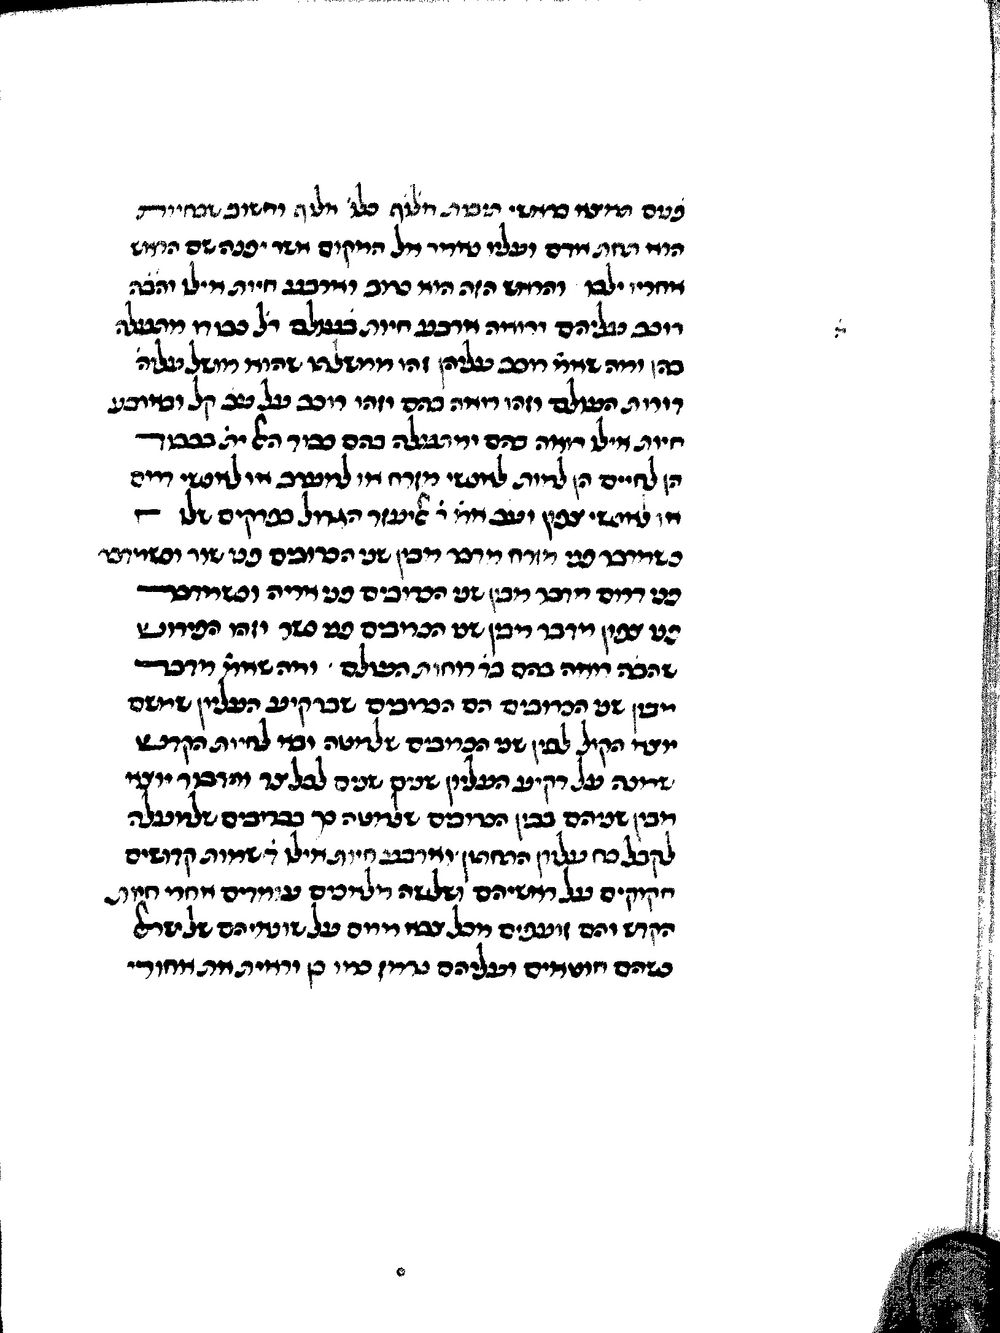 פנים תמצא בראשי תיבות אלוף כלו׳ אלוף וחשוב שבחיות
הוא תחת אדם ועליו אומר אל המקום אשר יפנה שם הראש
אחריו ילכו והראש הזה הוא כרוב וארבע חיות אילו והק׳בה
רוכב עליהם ירואה ארבע חיות בעולם ר׳ל כבודו מתגלה
בהן ומה שאמ׳ רוכב עליהן זהו ממשלתו שהוא מושל עליה׳
דורות העולם וזהו רואה בהם וזהו רוכב על עב קל ובארבע
חיות אילו רואה בהם ומתגלה בהם כבוד הש׳ ית׳ בכבוד
הן לחיים הן למות לאנשי מזרח או למערב או לאנשי דרום
או לאנשי צפון ועב אמ׳ ר׳ אליעזר הגדול בפרקים שלו
כשמדבר פני מזרח מדבר מבין שני הכרובים פני שור וכשמדבר
פני דרום מדבר מבין שני הכרובים פני אריה וכשמדבר
פני צפון מדבר מבין שני הכרובים פני נשר וזהו הפירוש
שהק׳בה רואה בהם בד׳ רוחות העולם ׳ ומה שאמ׳ מדבר
מבין שני הכרובים הם הכרובים שברקיע העליון שמשם
יוצא הקול לבין שני הכרובים שלמטה ובא לחיות הקדש
שדומה על רקיע העליון שנים שנים לכל צד והדבור יוצא
מבין שניהם כבין הכרובים שלמטה כך כברובים שלמעלה
לקבל כח עליון התחתון וארבע חיות אילו ד׳ שמות קדושים
חקוקים על ראשיהם ושלשה מלאכים עומדים אחרי חיות
הקדש והם זועפים מכל צבא מרום על שונאיהם של ישראל
כשהם חוטאים ועליהם נרמז כמו כן וראית את אחורי